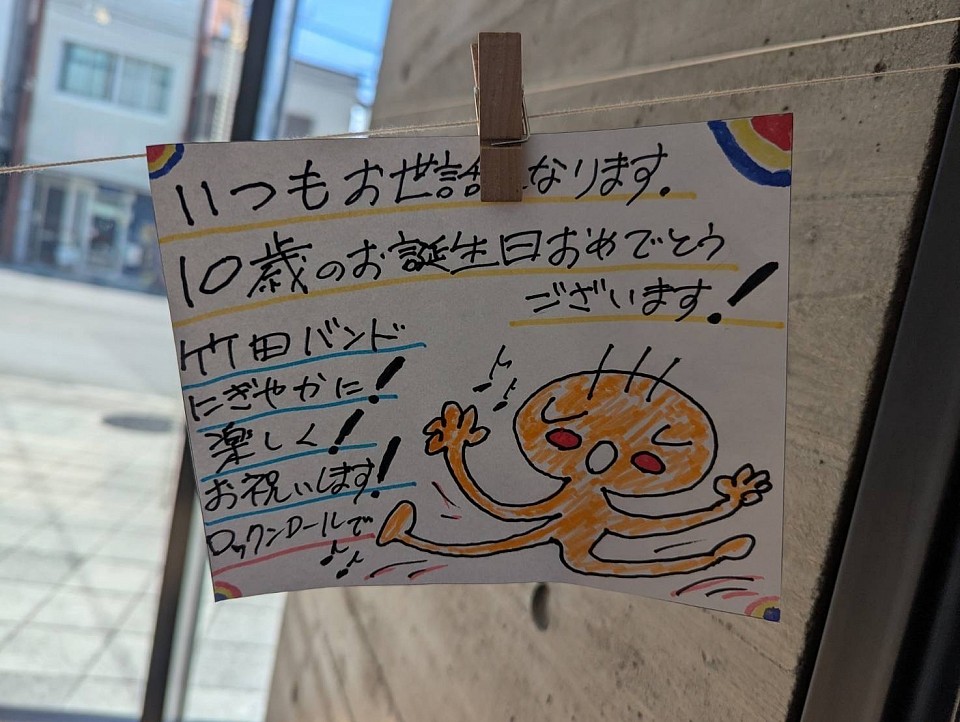 いつもお世話なります。
10歳のお誕生日おめでとう
ございます!
竹田バンド
にぎやかに!
楽しく!
お祝いします!
ロックンロールで